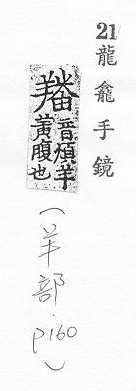 21 龍龕手鏡
羳
音煩羊
黃腹也
(羊部.p160)